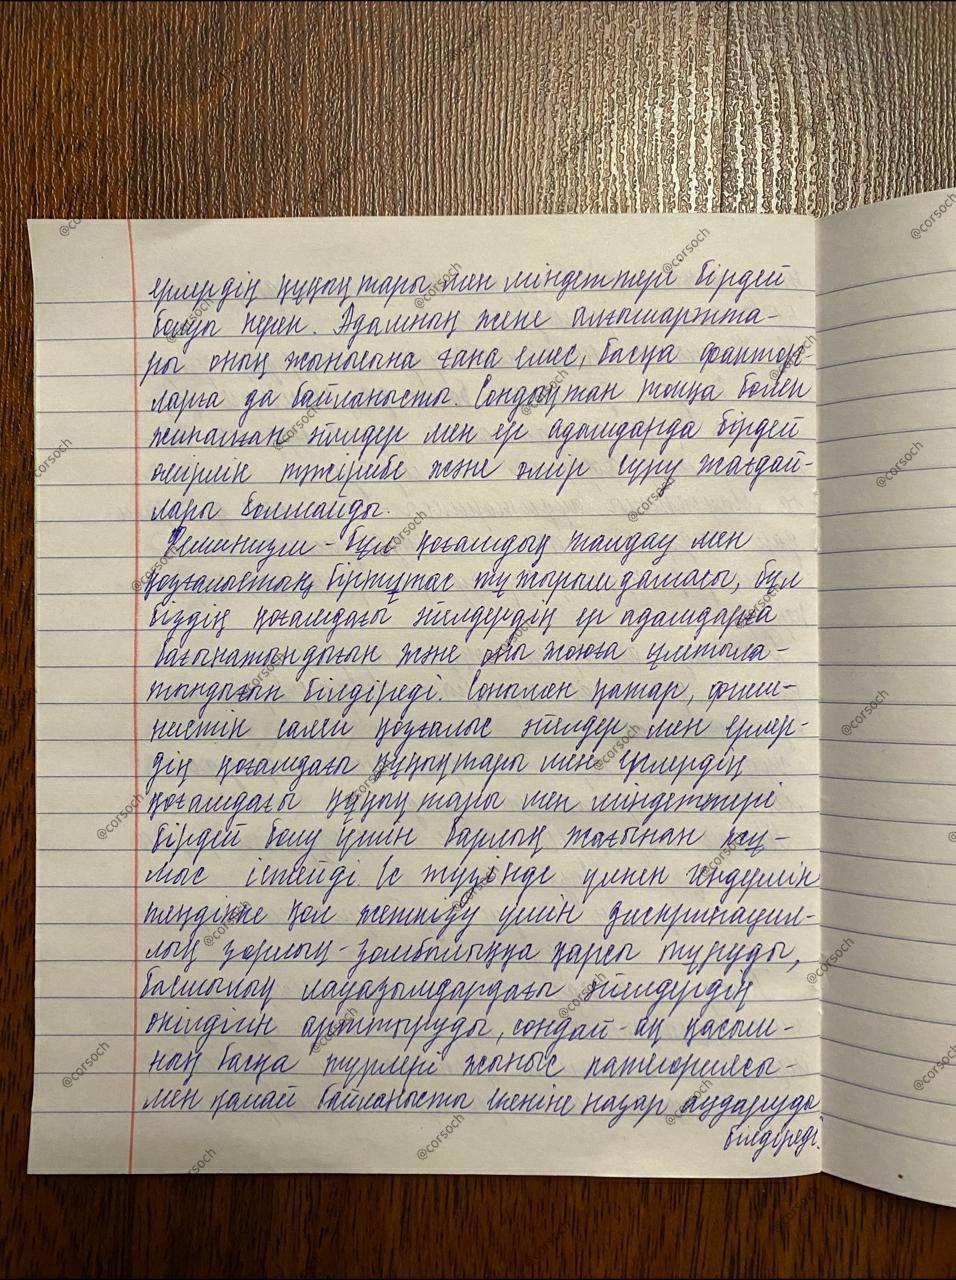 ерлердің құқықтары мен міндеттері бірдей
болуы керек. Адамның және алғышартта-
ры оның жынысына ғана емес, басқа фактор-
ларға да байланысты. Сондықтан топқа бөлен
жиналған әйелдер мен ер адамдарда бірдей
өмірлік тәжірибе және өмір сүру жағдай-
лары болмайды.
Феминизм - бұл қоғамдық талдау мен
қозғалыстың біртұтас тұжырымдамасы, бұл
біздің қоғамдағы әйелдердің ер адамдарға
бағынатындығын және оны жоюға ұмтыла-
тындығын білдіреді. Сонымен қатар, феми-
нистік саяси қозғалыс әйелдер мен ерлер-
дің қоғамдағы құқықтары мен ерлердің
қоғамдағы құқықтары мен міндеттері
бірдей болу үшін барлық жағынан жұ-
мыс істейді. Іс жүзінде үлкен гендерлік
теңдікке қол жеткізу үшін дискриминация-
лық зорлық-зомбылыққа қарсы тұруды,
басшылық лауазымдардағы әйелдердің
өкілдігін арттыруды, сондай-ақ қасым-
нан басқа түрлері жыныс категориясы-
мен қалай байланысты екеніне назар аударуды
білдіреді.
@corsoch
@corsoch
@corsoch
@corsoch
@corsoch
@corsoch
@corsoch
@corsoch
@corsoch
@corsoch
@corsoch
@corsoch